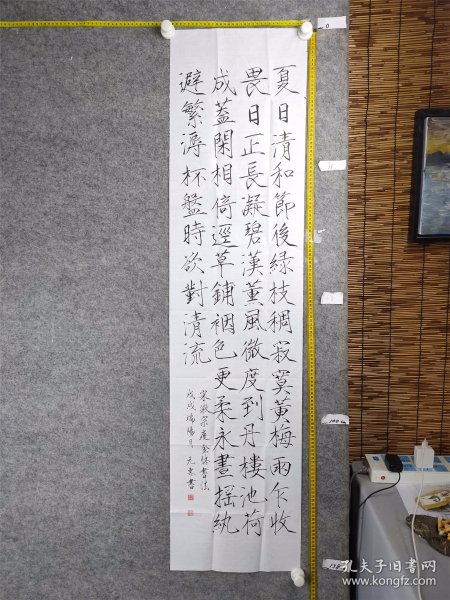 夏日清和節後綠枝稠寂寞黃梅雨乍收
畏日正長凝碧漢薰風微度到丹樓池荷
成蓋閑相倚逕草鋪裀色更柔永晝搖紈
避繁溽杯盤時欲對清流
戊戌端陽月
0
孔夫子旧书网
www.kongfz.com